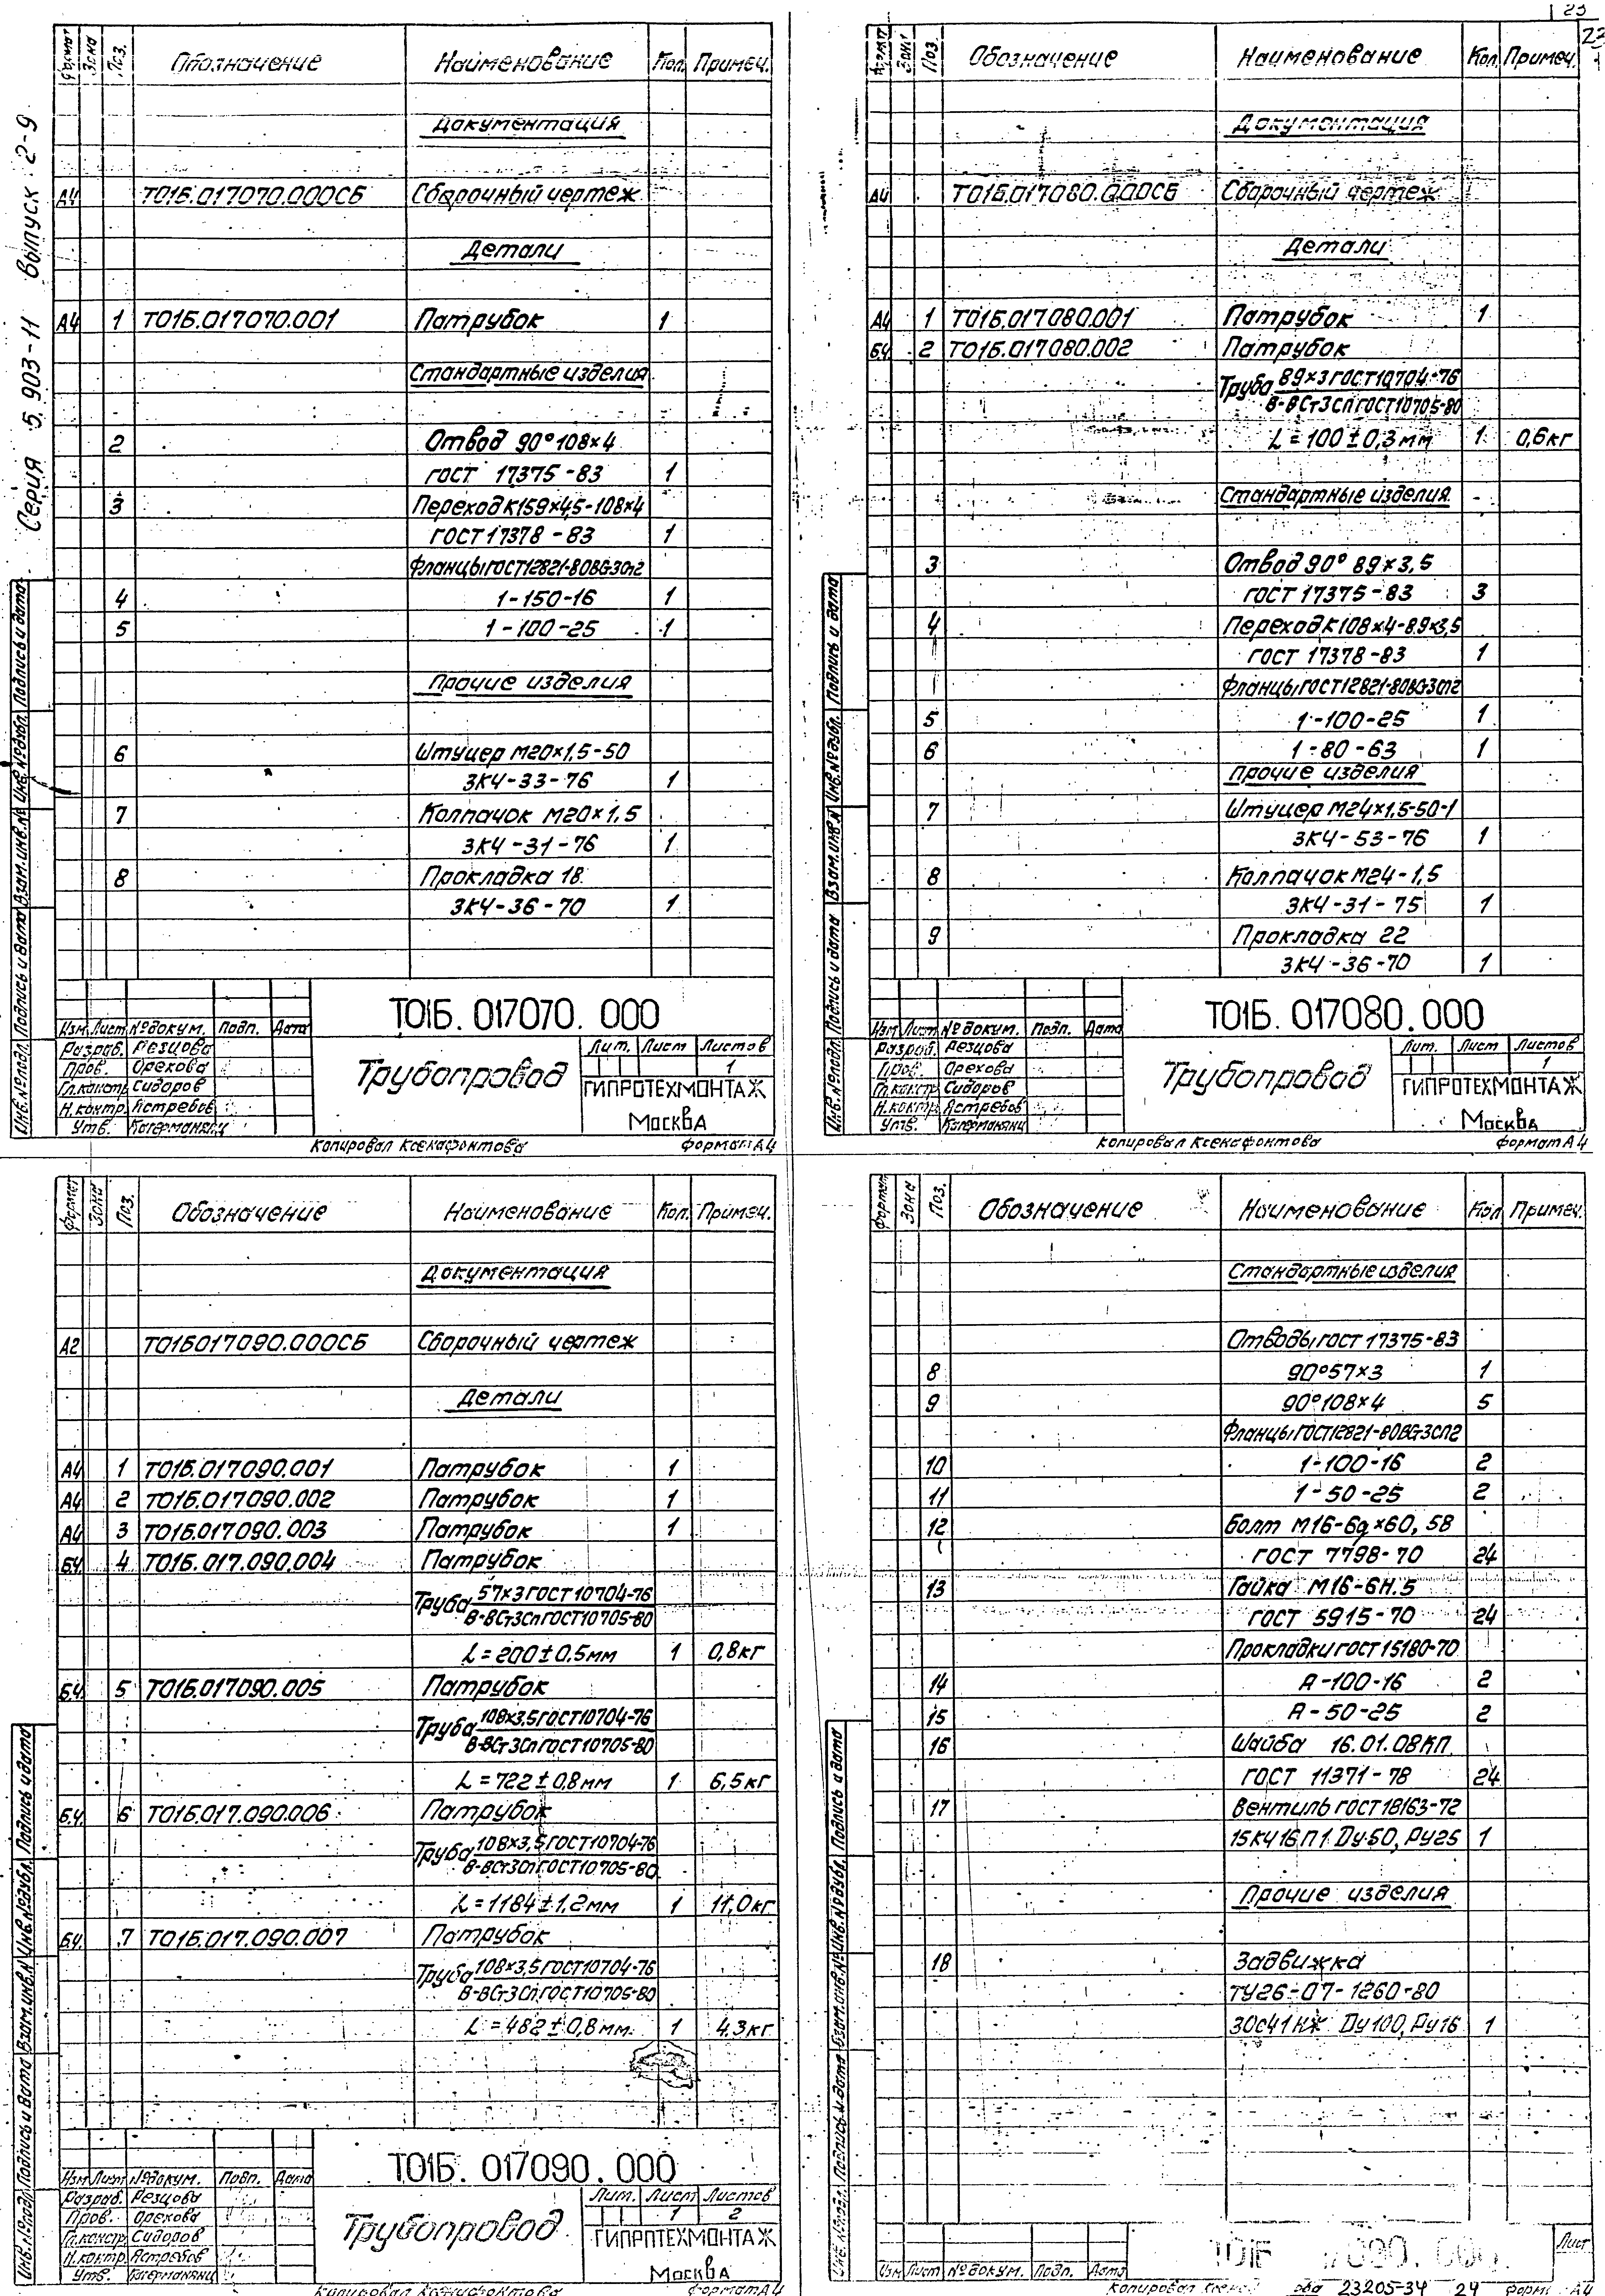 23
22
Серия 5.903-11 Выпуск 2-9
Формат Зона Поз. Обозначение Наименование Кол. Примеч.
Документация
А4 Т01Б.017070.000СБ Сборочный чертеж
Детали
А4 1 Т01Б.017070.001 Патрубок 1
Стандартные изделия
2 Отвод 90°108×4
ГОСТ 17375-83 1
3 Переход К159×4,5-108×4
ГОСТ 17378-83 1
Фланцы ГОСТ 12821-80 ВСт3сп2
4 1-150-16 1
5 1-100-25 1
Прочие изделия
6 Штуцер М20×1,5-50
ЗК4-33-76 1
7 Колпачок М20×1,5
ЗК4-31-76 1
8 Прокладка 18
ЗК4-36-70 1
Инв.№подл. Подпись и дата Взам.инв.№ Инв.№дубл. Подпись и дата
Т01Б. 017070. 000
Изм. Лист №докум. Подп. Дата
Разраб. Резцова
Пров. Орехова
Гл.констр. Сидоров
Н.контр. Ястребов
Утв.
Трубопровод
Лит. Лист Листов
1
ГИПРОТЕХМОНТАЖ
Москва
Копировал Ксенафонтова Формат А4
Формат Зона Поз. Обозначение Наименование Кол. Примеч.
Документация
А4 Т01Б.017080.000СБ Сборочный чертеж
Детали
А4 1 Т01Б.017080.001 Патрубок 1
БЧ 2 Т01Б.017080.002 Патрубок
Труба 89×3 ГОСТ 10704-76
В-ВСт3сп ГОСТ 10705-80
L=100±0,3мм 1 0,6кг
Стандартные изделия
3 Отвод 90° 89×3,5
ГОСТ 17375-83 3
4 Переход К108×4-89×3,5
ГОСТ 17378-83 1
Фланцы ГОСТ 12821-80 ВСт3сп2
5 1-100-25 1
6 1-80-63 1
Прочие изделия
7 Штуцер М24×1,5-50-1
ЗК4-53-76 1
8 Колпачок М24-1,5
ЗК4-31-75 1
9 Прокладка 22
ЗК4-36-70 1
Инв.№подл. Подпись и дата Взам.инв.№ Инв.№дубл. Подпись и дата
Т01Б. 017080.000
Изм. Лист №докум. Подп. Дата
Разраб. Резцова
Пров. Орехова
Гл.констр. Сидоров
Н.контр. Ястребов
Утв.
Трубопровод
Лит. Лист Листов
1
ГИПРОТЕХМОНТАЖ
Москва
Копировал Ксенафонтова Формат А4
Формат Зона Поз. Обозначение Наименование Кол. Примеч.
Документация
А2 Т01Б017090.000СБ Сборочный чертеж
Детали
А4 1 Т01Б.017090.001 Патрубок 1
А4 2 Т01Б.017090.002 Патрубок 1
А4 3 Т01Б.017090.003 Патрубок 1
БЧ 4 Т01Б.017.090.004 Патрубок
Труба 57×3 ГОСТ 10704-76
В-ВСт3сп ГОСТ 10705-80
L=200±0,5мм 1 0,8кг
БЧ 5 Т01Б.017090.005 Патрубок
Труба 108×3,5 ГОСТ 10704-76
В-ВСт3сп ГОСТ 10705-80
L=722±0,8мм 1 6,5кг
БЧ 6 Т01Б.017.090.006 Патрубок
Труба 108×3,5 ГОСТ 10704-76
В-ВСт3сп ГОСТ 10705-80
L=1184±1,2мм 1 11,0кг
БЧ 7 Т01Б.017.090.007 Патрубок
Труба 108×3,5 ГОСТ 10704-76
В-ВСт3сп ГОСТ 10705-80
L=482±0,8мм 1 4.3кг
Инв.№подл. Подпись и дата Взам.инв.№ Инв.№дубл. Подпись и дата
Т01Б. 017090.000
Изм. Лист №докум. Подп. Дата
Разраб. Резцова
Пров. Орехова
Гл.констр. Сидоров
Н.контр. Ястребов
Утв.
Трубопровод
Лит. Лист Листов
1 2
ГИПРОТЕХМОНТАЖ
Москва
Копировал Ксенафонтова Формат А4
Формат Зона Поз. Обозначение Наименование Кол Примеч.
Стандартные изделия
Отводы ГОСТ 17375-83
8 90°57×3 1
9 90°108×4 5
Фланцы ГОСТ 12821-80 ВСт3сп2
10 1-100-16 2
11 1-50-25 2
12 Болт М16-6g×60, 58
ГОСТ 7798-70 24
13 Гайка М16-6Н.5
ГОСТ 5915-70 24
Прокладки ГОСТ 15180-70
14 А-100-16 2
15 А-50-25 2
16 Шайба 16.01.08КП
ГОСТ 11371-78 24
17 Вентиль ГОСТ 18163-72
15КЧ16П1 Ду50, Ру25 1
Прочие изделия
18 Задвижка
ТУ26-07-1260-80
30с41нж Ду100, Ру16 1
Инв.№подл. Подпись и дата Взам.инв.№ Инв.№дубл. Подпись и дата
Изм Лист №докум. Подп. Дата
Т01Б 17090.000
Лист
Копировал 23205-34 24 Форм А4